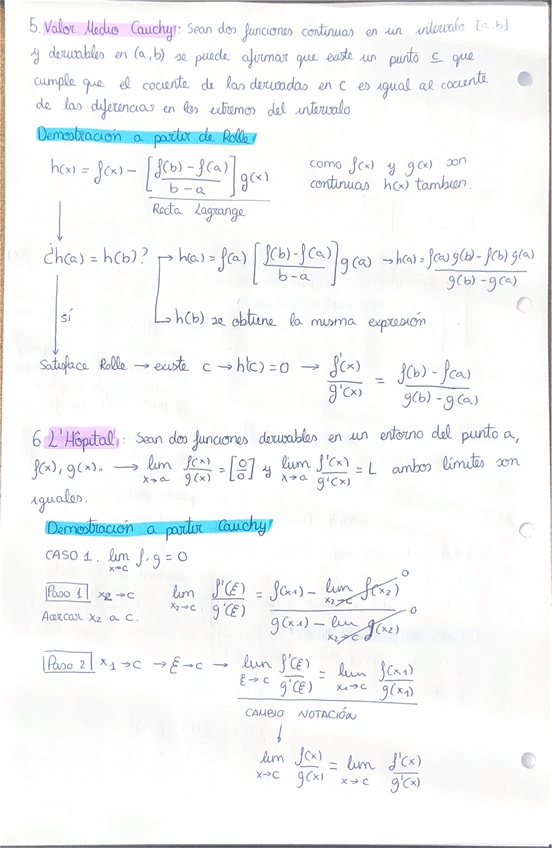 5. Valor Medio Cauchy: Sean dos funciones continuas en un intervalo [a,b]
y derivables en (a,b) se puede afirmar que existe un punto c que
cumple que el cociente de las derivadas en c es igual al cociente
de las diferencias en los extremos del intervalo
Demostración a partir de Rolle
h(x) = f(x) - [f(b) - f(a) / b - a] g(x) como f(x) y g(x) son
continuas h(x) tambien.
Recta Lagrange
¿h(a) = h(b)? → h(a) = f(a) [f(b) - f(a) / b - a] g(a) → h(a) = f(a) g(b) - f(b) g(a) / g(b) - g(a)
sí
→ h(b) se obtiene la misma expresión
Satisface Rolle → existe c → h'(c) = 0 → f'(x) / g'(x) = f(b) - f(a) / g(b) - g(a)
6. L'Hôpital: Sean dos funciones derivables en un entorno del punto a,
f(x), g(x). → lim x→a f(x) / g(x) = [0/0] y lim x→a f'(x) / g'(x) = L ambos límites son
iguales.
Demostración a partir Cauchy
CASO 1. lim x→c f · g = 0
Paso 1 x2 → c lim x2→c f'(ξ) / g'(ξ) = f(x1) - lim x2→c f(x2) 0 / g(x1) - lim x2→c g(x2) 0
Acercar x2 a c.
Paso 2 x1 → c → ξ → c → lim ξ→c f'(ξ) / g'(ξ) = lim x1→c f(x1) / g(x1)
CAMBIO NOTACIÓN
↓
lim x→c f(x) / g(x) = lim x→c f'(x) / g'(x)